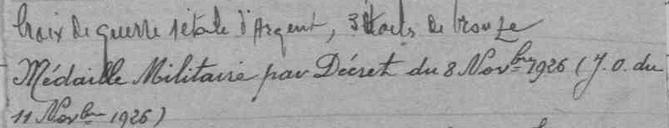 Croix de guerre 1 étoile d'Argent, 3 étoiles de bronze
Médaille Militaire par Décret du 8 Novbre 1926 (J.O. du
11 Novbre 1926)